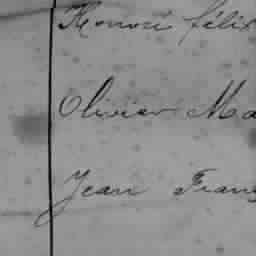 Honoré félix
Olivier Ma
Jean Franç